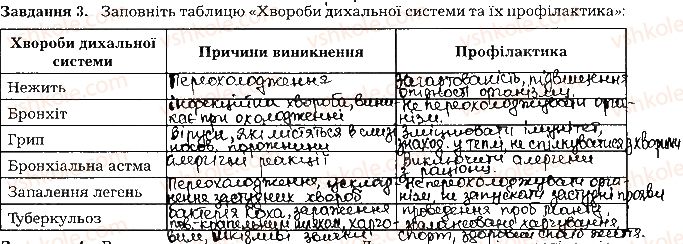 Завдання 3. Заповніть таблицю «Хвороби дихальної системи та їх профілактика»:
Хвороби дихальної системи
Причини виникнення
Профілактика
Нежить
Переохолодження
Загартованість, підвищення
опірності організму.
Бронхіт
Інфекційна хвороба, вини-
кає при охолодженні
Не переохолоджувати орга-
нізм.
Грип
Віруси, які містяться в слиз
носов. порожнини
Зміцнювати імунітет,
знаход. у теплі, не спілкуватися з хворими
Бронхіальна астма
Алергічні реакції
Виключити алергени
з раціону.
Запалення легень
Переохолодження, усклад-
нення застудних хвороб
Не переохолоджувати орга-
нізм, не запускати застудні прояви
Туберкульоз
бактерія Коха, зараження
пов.-крапельним шляхом, харчо-
вим, шкідливі звички
проведення проб Манту,
збалансоване харчування
спорт, здоровий спосіб життя.